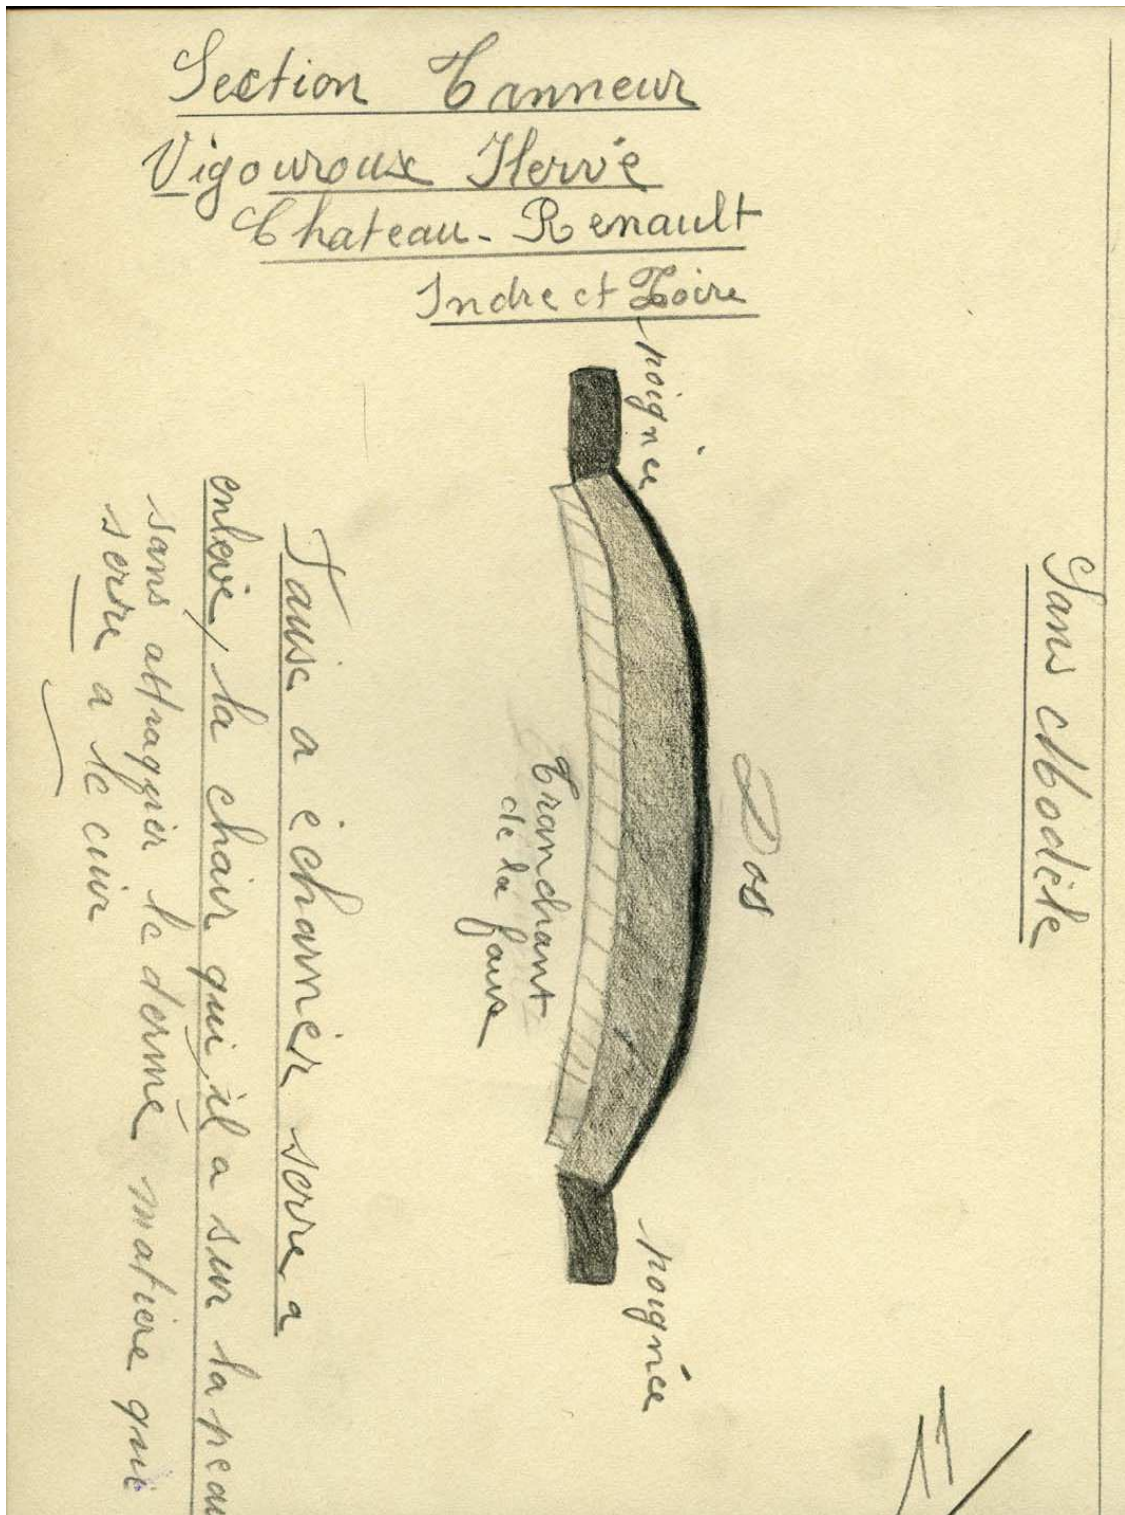 Section Tanneur
Vigouroux Hervé
Chateau-Renault
Indre et Loire
Sans Modèle
poignée
Dos
Tranchant
de la faux
poignée
Faux a écharner serre a
enlevé, la chair qui, il a sur la peau
sans attraquer le dermé matiere qui
serre a le cuir
11